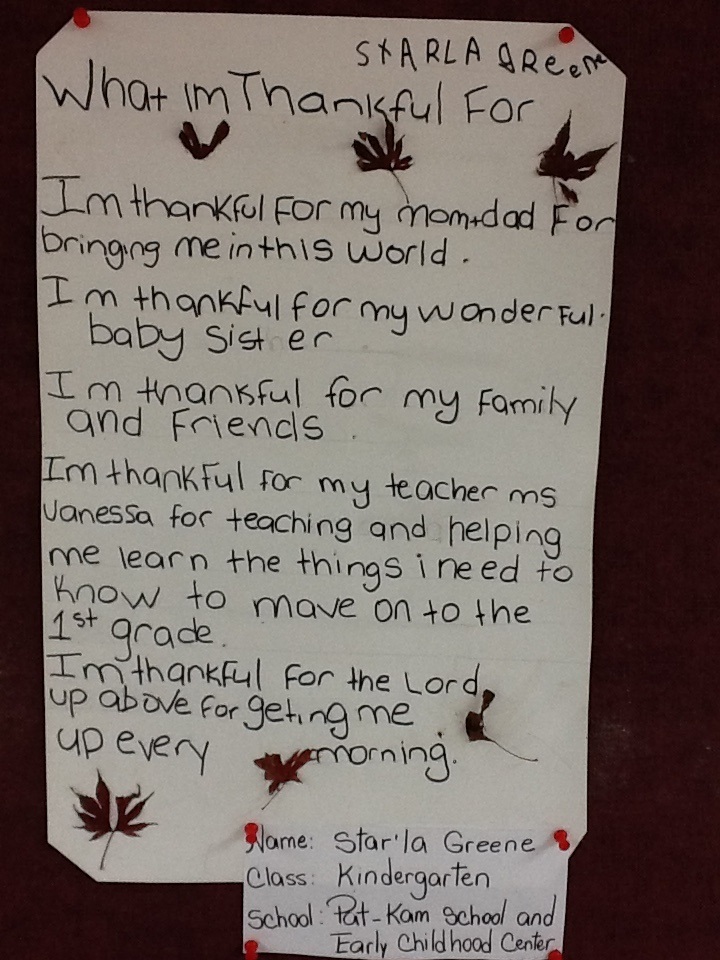 StARLA GReene
What Im Thankful For
Im thankful For my mom+dad For
bringing me in this world.
I m thankful for my wonderful.
baby sister
I m thankful for my Family
and Friends.
Im thankful for my teacher ms
vanessa for teaching and helping
me learn the things i need to
know to move on to the
1st grade.
Im thankful For the Lord
up above for geting me
up every morning.
Name: Star'la Greene
Class: Kindergarten
School: Pat-Kam School and
Early Childhood Center